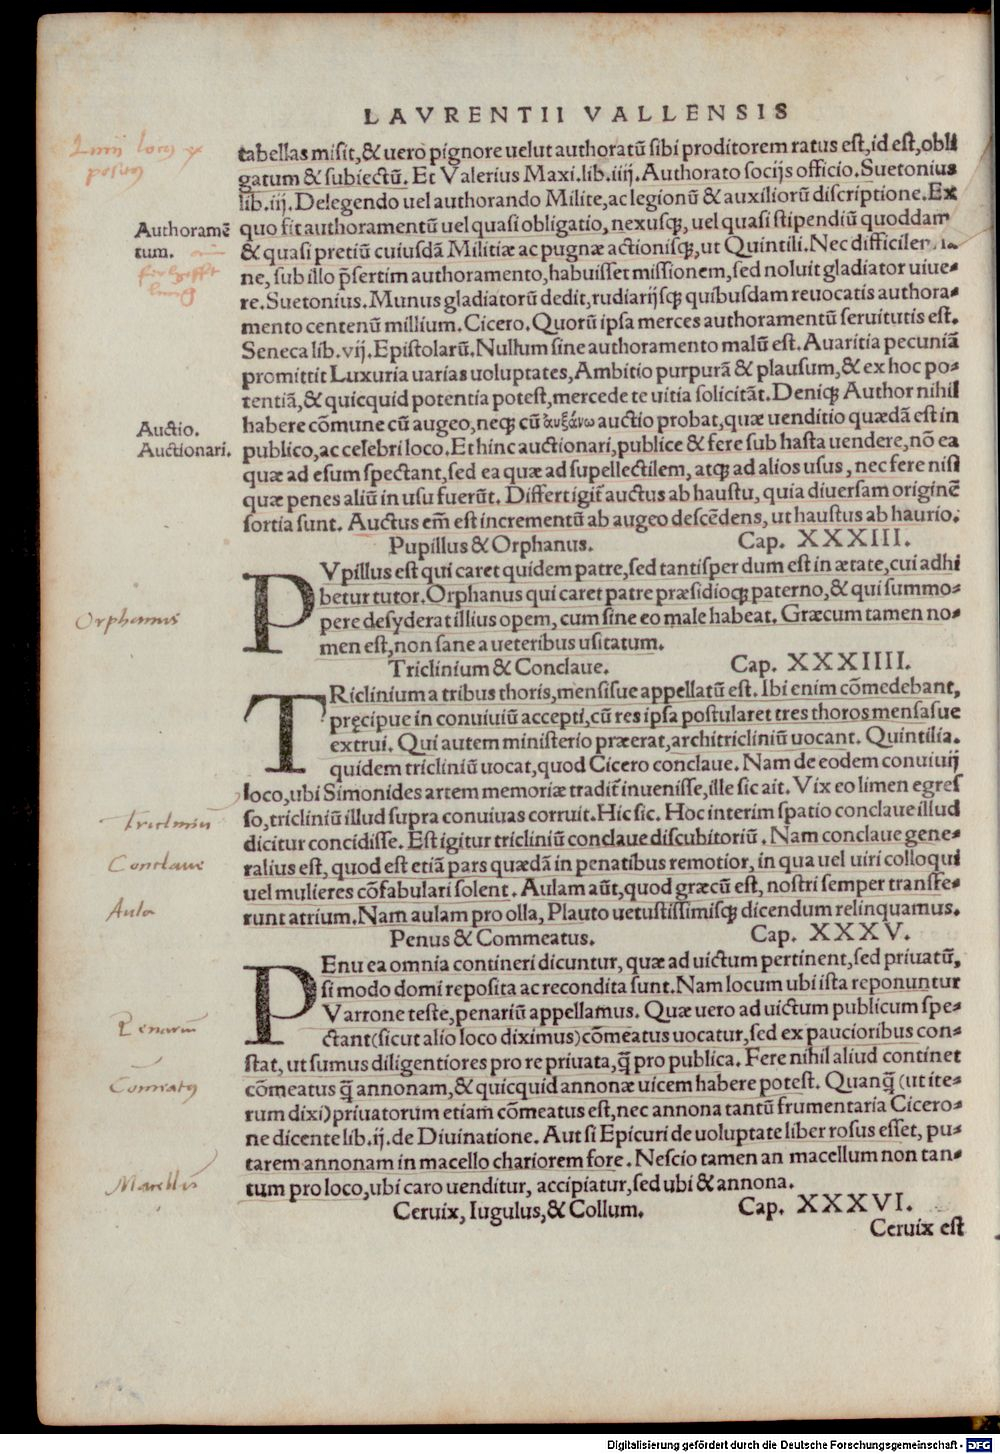 LAVRENTII VALLENSIS
tabellas misit,& uero pignore uelut authoratũ sibi proditorem ratus est,id est,obli
gatum & subiectũ. Et Valerius Maxi.lib.iiij. Authorato socijs officio. Suetonius
lib.iij. Delegendo uel authorando Milite,ac legionũ & auxiliorũ discriptione. Ex
Authoramẽ
tum.
quo fit authoramentũ uel quasi obligatio, nexusq;, uel quasi stipendiũ quoddam
& quasi pretiũ cuiusdã Militiæ ac pugnæ actionisq;,ut Quintili. Nec
ne, sub illo p̃sertim authoramento,habuisset missionem,sed noluit gladiator uiue-
re. Suetonius. Munus gladiatorũ dedit,rudiarijsq; quibusdam reuocatis authora-
mento centenũ millium. Cicero. Quorũ ipsa merces authoramentũ seruitutis est.
Seneca lib.vij. Epistolarũ. Nullum sine authoramento malũ est. Auaritia pecuniã
promittit Luxuria uarias uoluptates, Ambitio purpurã & plausum,& ex hoc po-
tentiã,& quicquid potentia potest,mercede te uitia solicitãt. Deniq; Author nihil
Auctio.
Auctionari.
habere cõmune cũ augeo,neq; cũ ἀυξάνω auctio probat,quæ uenditio quædã est in
publico,ac celebri loco. Et hinc auctionari,publice & fere sub hasta uendere,nõ ea
quæ ad esum spectant,sed ea quæ ad supellectilem, atq; ad alios usus, nec fere nisi
quæ penes aliũ in usu fuerũt. Differt igit̃ auctus ab haustu, quia diuersam originẽ
sortia sunt. Auctus em̃ est incrementũ ab augeo descẽdens, ut haustus ab haurio.
Pupillus & Orphanus. Cap. XXXIII.
PVpillus est qui caret quidem patre,sed tantisper dum est in ætate,cui adhi
betur tutor. Orphanus qui caret patre præsidioq; paterno,& qui summo-
Orphanus
pere desyderat illius opem, cum sine eo male habeat. Græcum tamen no-
men est,non sane a ueteribus usitatum.
Triclinium & Conclaue. Cap. XXXIIII.
TRiclinium a tribus thoris,mensisue appellatũ est. Ibi enim cõmedebant,
pręcipue in conuiuiũ accepti,cũ res ipsa postularet tres thoros mensasue
extrui. Qui autem ministerio præerat,architricliniũ uocant. Quintilia.
quidem tricliniũ uocat,quod Cicero conclaue. Nam de eodem conuiuij
loco,ubi Simonides artem memoriæ tradit̃ inuenisse,ille sic ait. Vix eo limen egres
Triclinium
so,tricliniũ illud supra conuiuas corruit. Hic sic. Hoc interim spatio conclaue illud
dicitur concidisse. Est igitur tricliniũ conclaue discubitoriũ. Nam conclaue gene-
Conclaue
ralius est, quod est etiã pars quædã in penatibus remotior, in qua uel uiri colloqui
uel mulieres cõfabulari solent. Aulam aũt,quod græcũ est, nostri semper transfe-
Aula
runt atrium. Nam aulam pro olla, Plauto uetustissimisq; dicendum relinquamus.
Penus & Commeatus. Cap. XXXV.
PEnu ea omnia contineri dicuntur, quæ ad uictum pertinent,sed priuatũ,
si modo domi reposita ac recondita sunt. Nam locum ubi ista reponuntur
Varrone teste,penariũ appellamus. Quæ uero ad uictum publicum spe-
Penarium
ctant(sicut alio loco diximus)cõmeatus uocatur,sed ex paucioribus con-
stat, ut sumus diligentiores pro re priuata,q̃ pro publica. Fere nihil aliud continet
Comeatus
cõmeatus q̃ annonam,& quicquid annonæ uicem habere potest. Quanq̃ (ut ite-
rum dixi)priuatorum etiam cõmeatus est,nec annona tantũ frumentaria Cicero-
ne dicente lib.ij. de Diuinatione. Aut si Epicuri de uoluptate liber rosus esset, pu-
tarem annonam in macello chariorem fore. Nescio tamen an macellum non tan-
Macellum
tum pro loco,ubi caro uenditur, accipiatur,sed ubi & annona.
Ceruix, Iugulus,& Collum. Cap. XXXVI.
Ceruix est
Digitalisierung gefördert durch die Deutsche Forschungsgemeinschaft - DFG